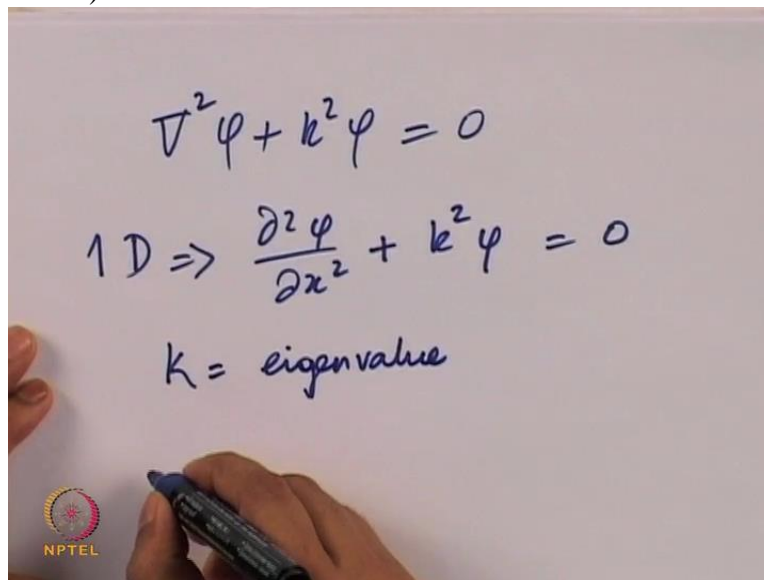 ∇²φ + k²φ = 0
1D ⇒ ∂²φ/∂x² + k²φ = 0
k = eigenvalue
NPTEL